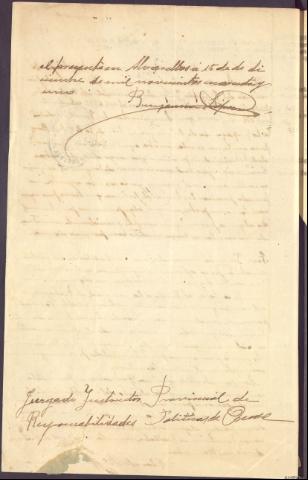 el presente en a 15 de di
ciembre de mil novecientos cuarenta y
uno
Benjamin
Juzgado Instructor Provincial de
Responsabilidades Politicas de Orense